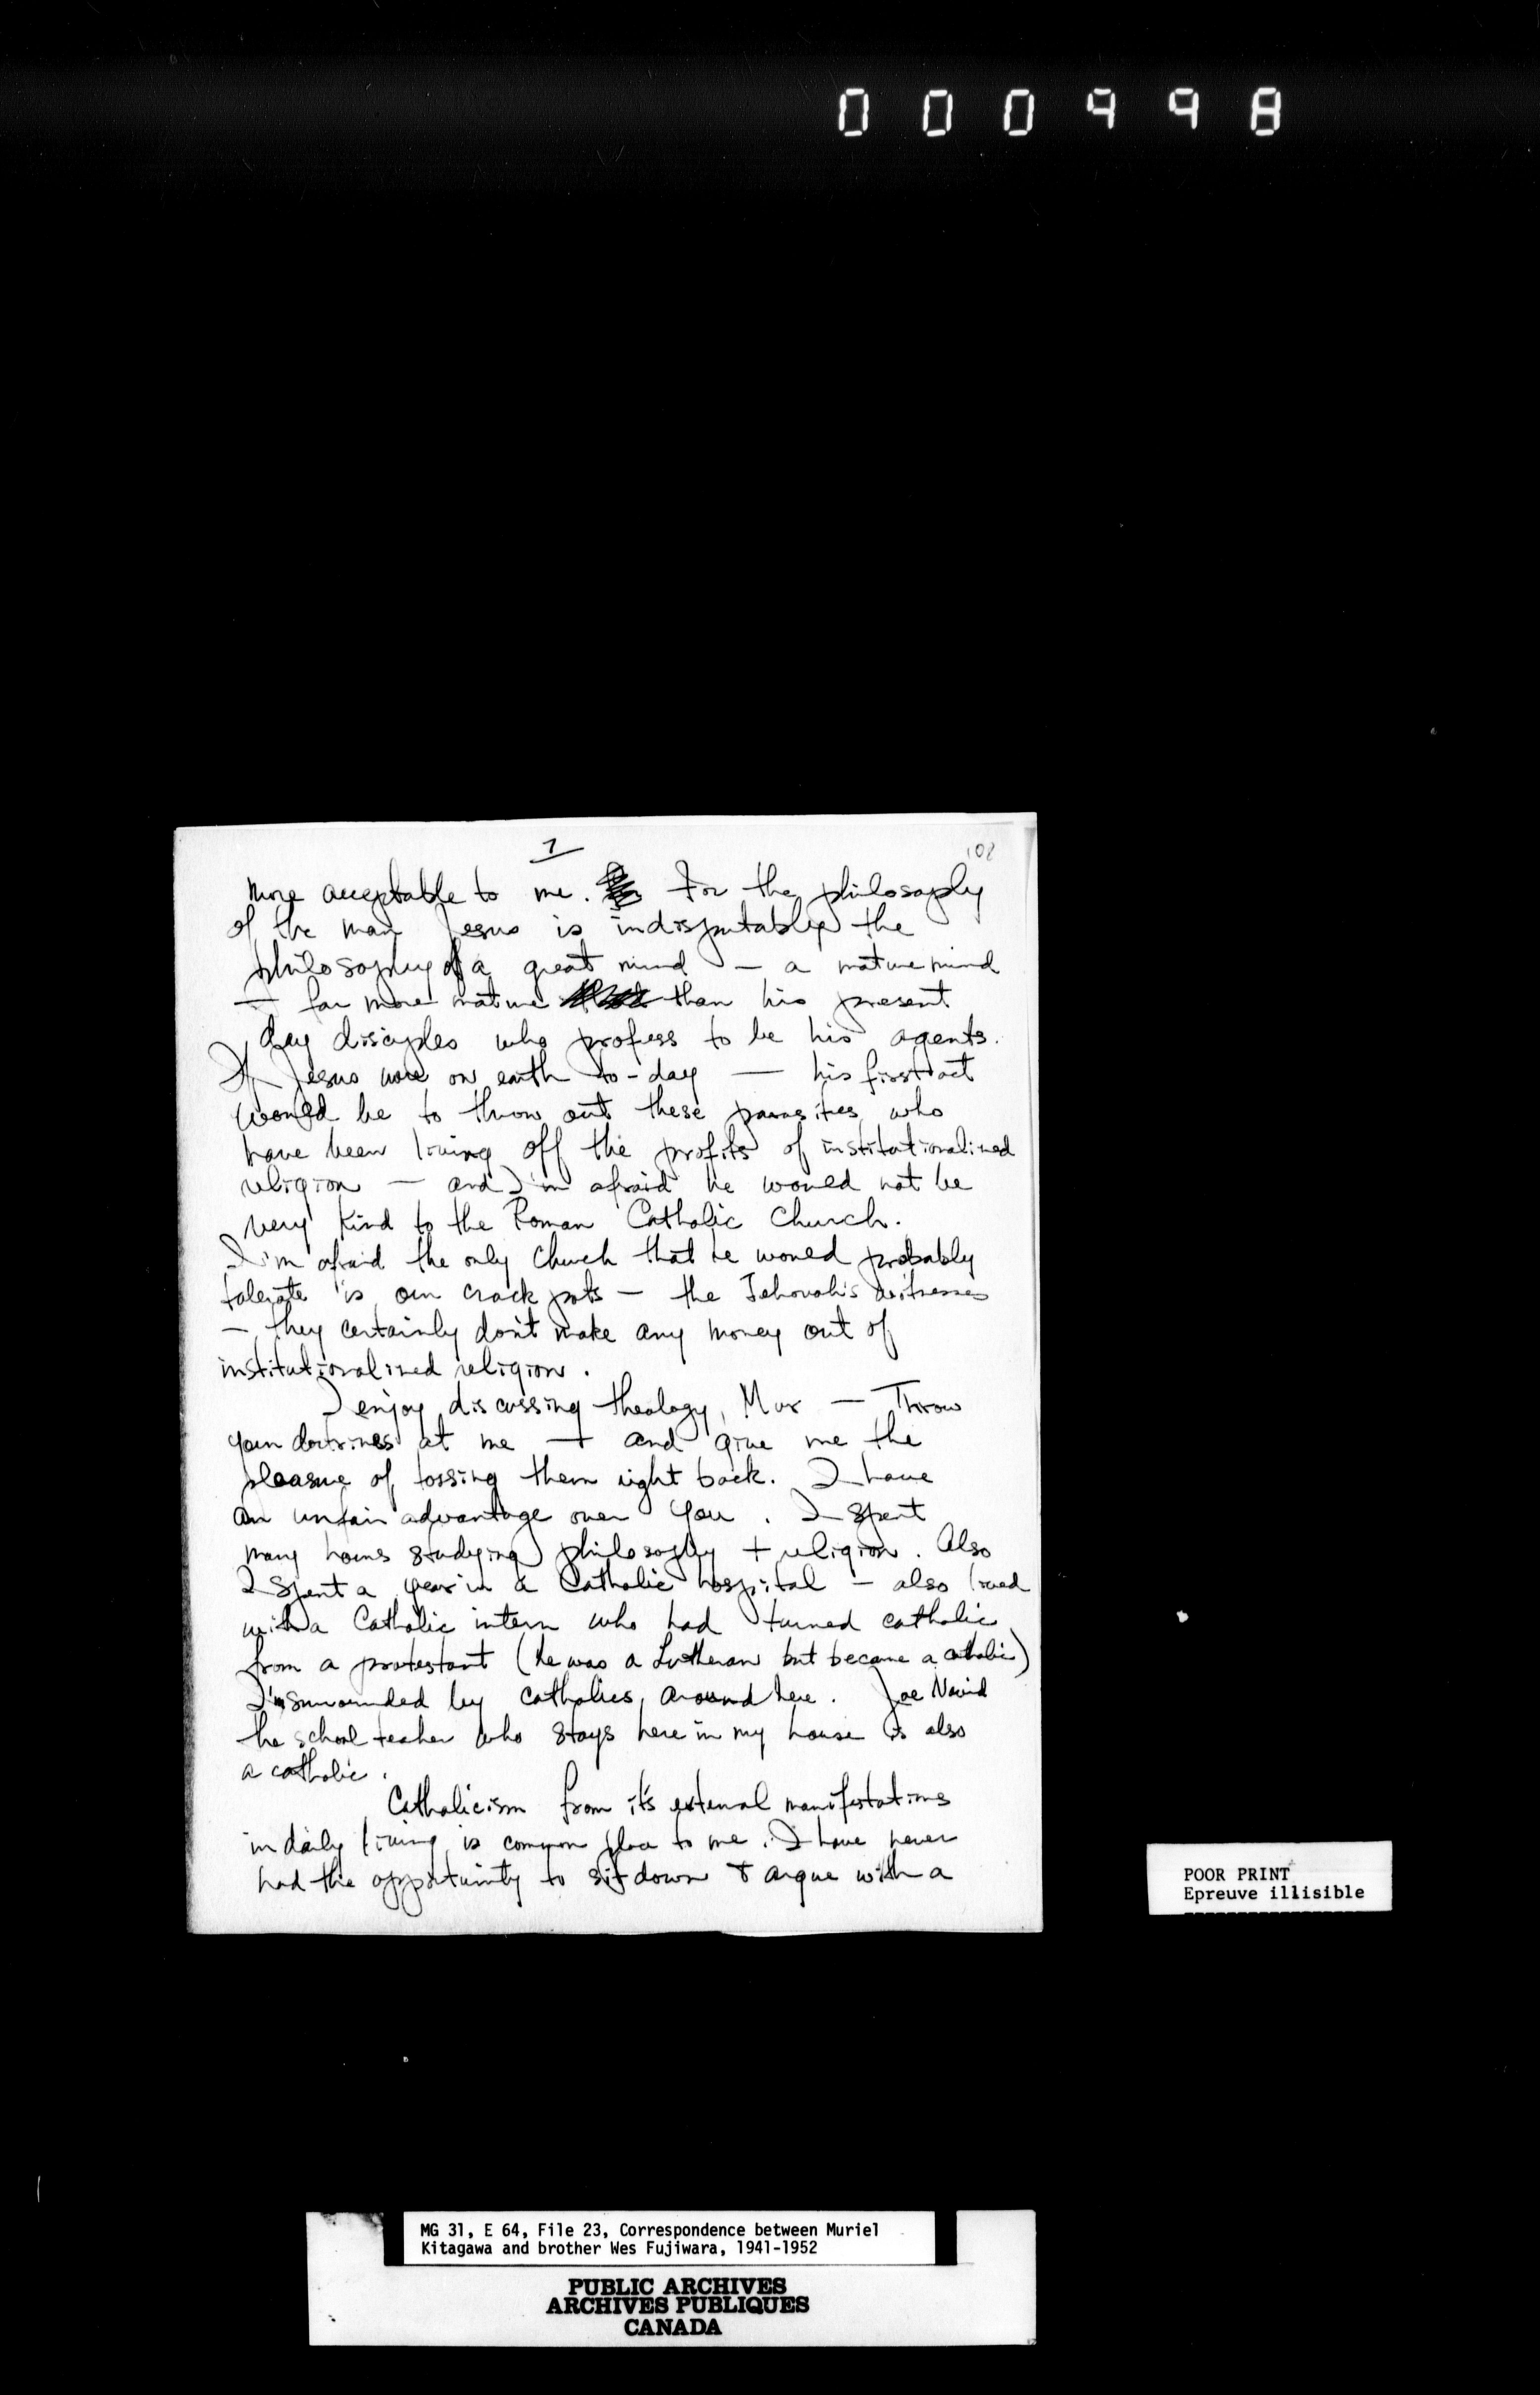 000998
7
102
more acceptable to me. For the philosophy
of the man Jesus is indisputably the
philosophy of a great mind — a mature mind
— far more mature than his present
day disciples who profess to be his agents.
If Jesus were on earth to-day — his first act
would be to throw out these parasites who
have been living off the profits of institutionalized
religion — and I'm afraid he would not be
very kind to the Roman Catholic Church.
I'm afraid the only church that he would probably
tolerate is our crack pots — the Jehovah's Witnesses
— they certainly don't make any money out of
institutionalized religion.
I enjoy discussing theology, Mur — Throw
your doctrines at me — and give me the
pleasure of tossing them right back. I have
an unfair advantage over you. I spent
many hours studying philosophy + religion. Also
I spent a year in a Catholic hospital — also lived
with a Catholic intern who had turned catholic
from a protestant (he was a Lutheran but became a catholic)
I'm surrounded by catholics around here. Joe
the school teacher who stays here in my house is also
a catholic.
Catholicism from it's external manifestations
in daily living is common place to me. I have never
had the opportunity to sit down & argue with a
POOR PRINT
Epreuve illisible
MG 31, E 64, File 23, Correspondence between Muriel
Kitagawa and brother Wes Fujiwara, 1941-1952
PUBLIC ARCHIVES
ARCHIVES PUBLIQUES
CANADA